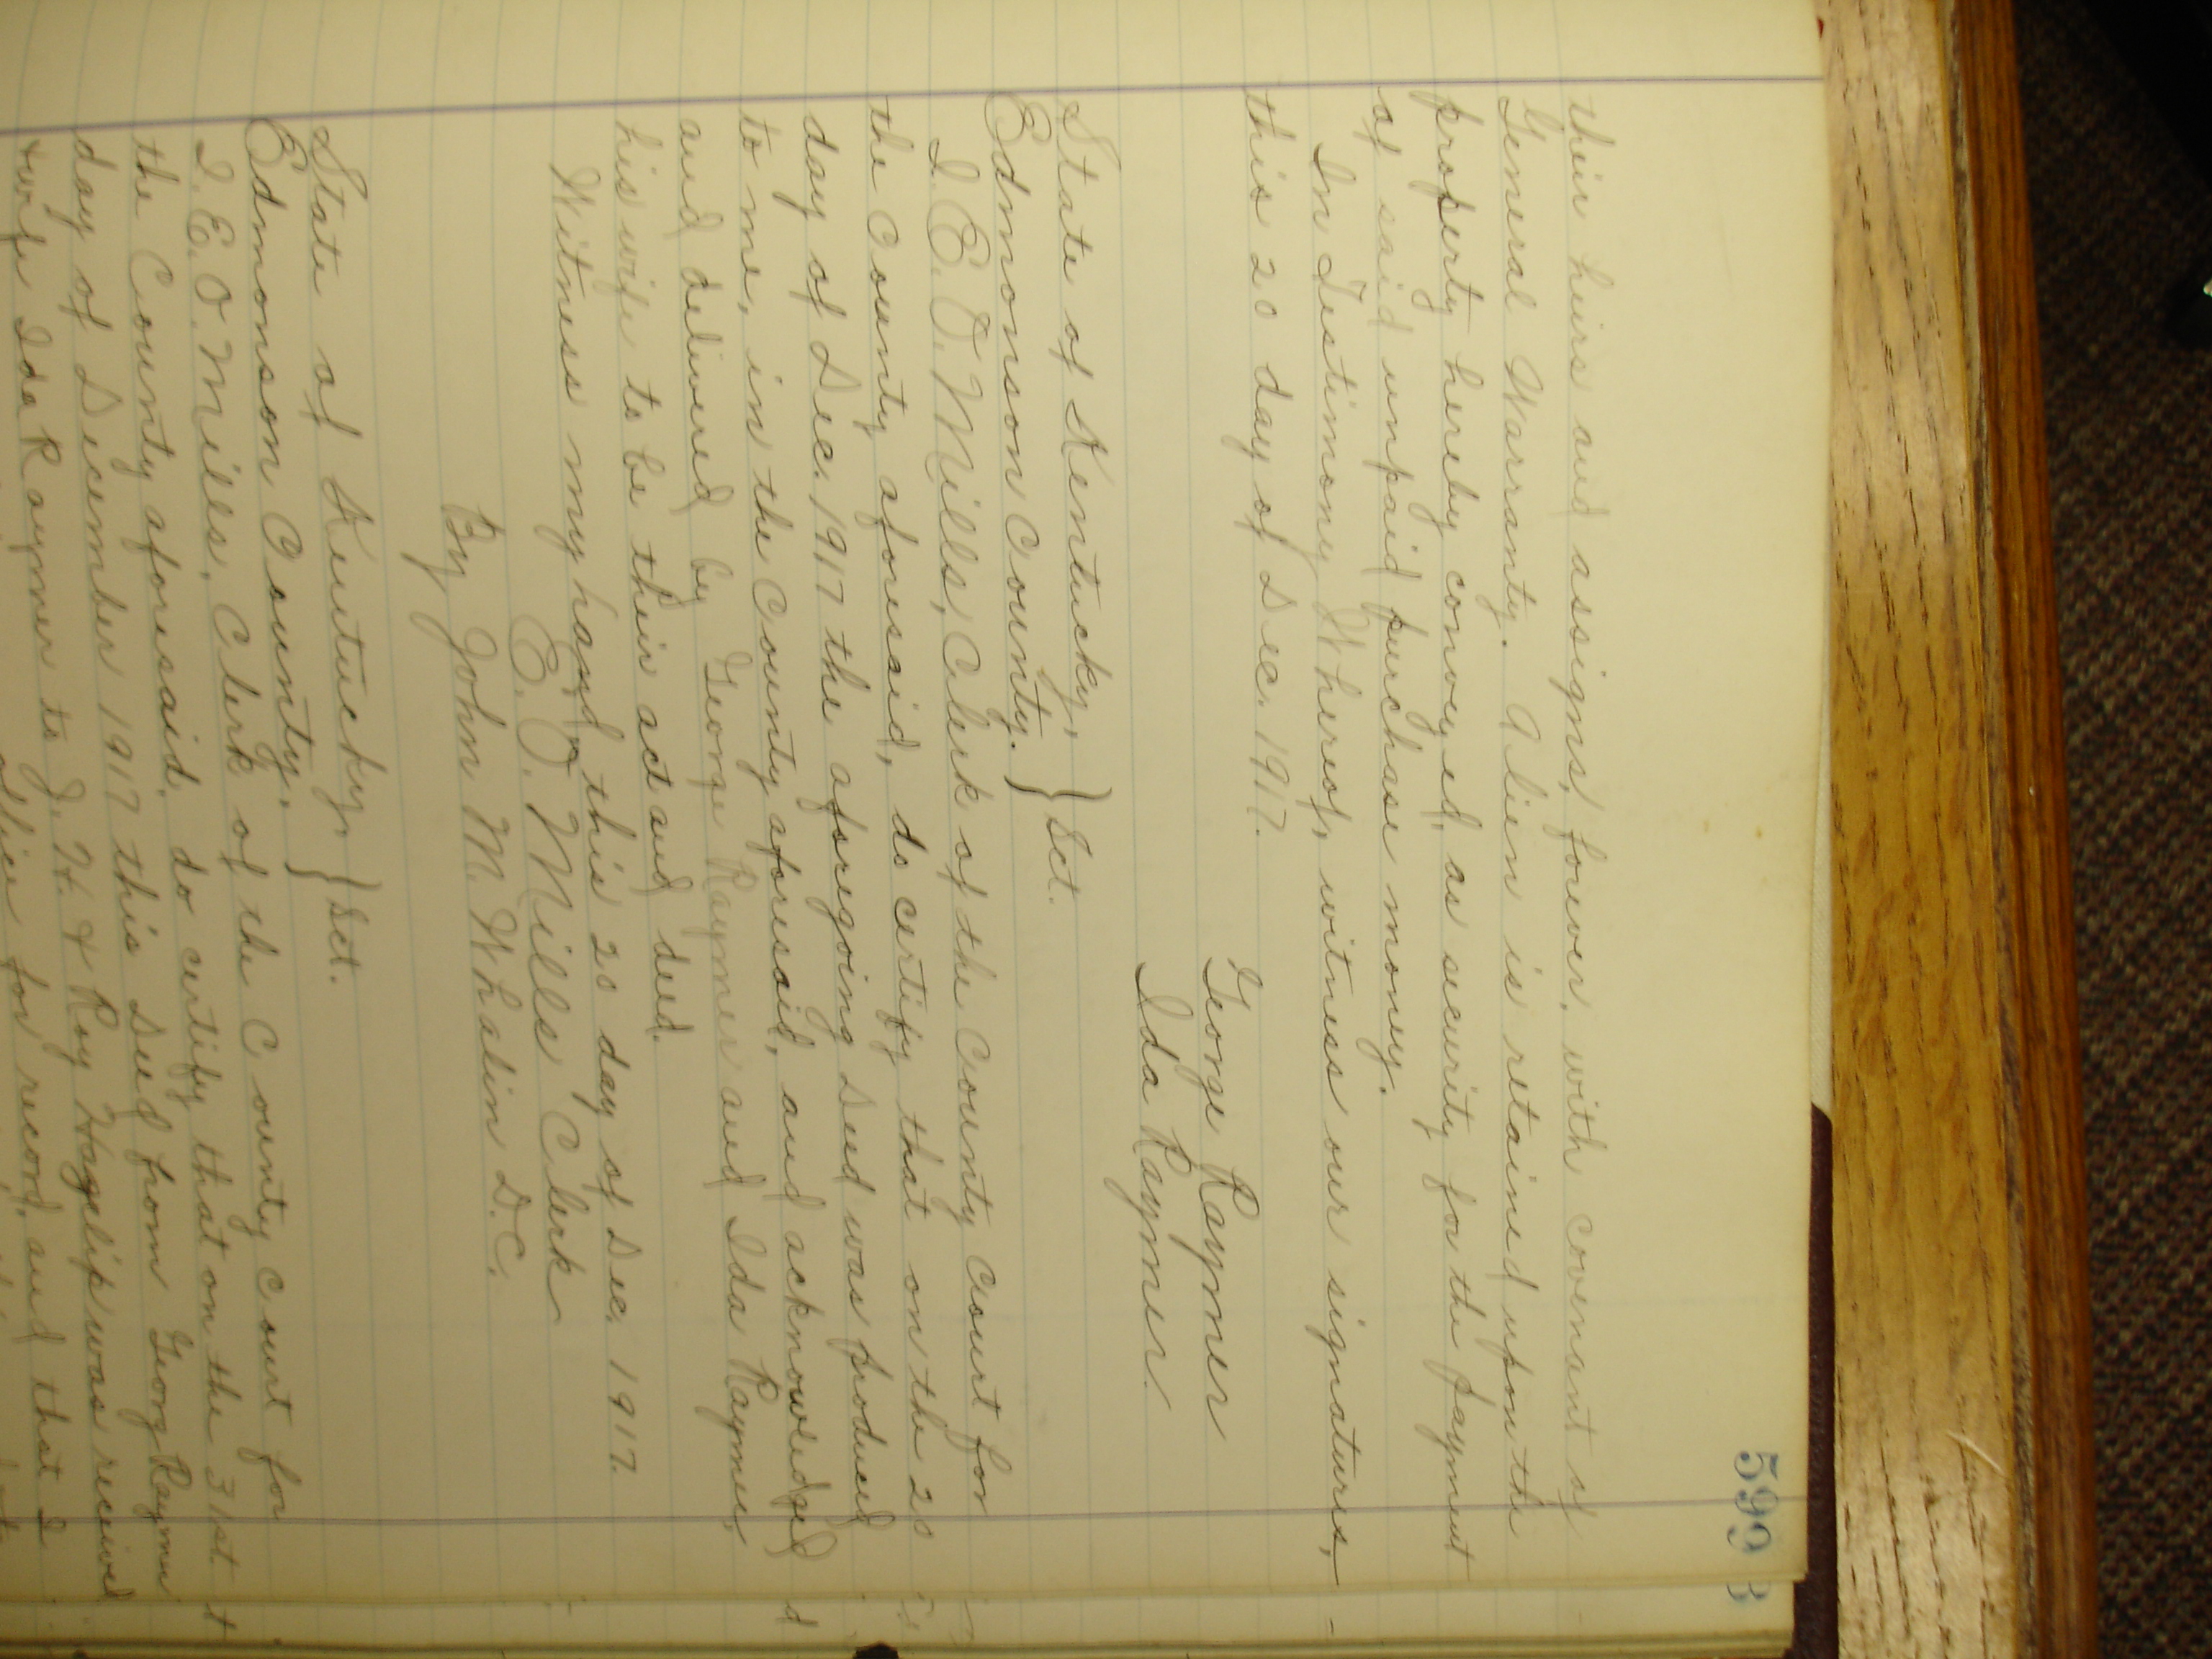 599
their heirs and assigns, forever, with covenant of
General Warranty. A lien is retained upon the
property hereby conveyed, as security for the payment
of said unpaid purchase money.
In Testimony Whereof, witness our signatures,
this 20 day of Dec. 1917.
George Raymer
Ida Raymer.
State of Kentucky, } Sct.
Edmonson County. }
I. E. O. Mills, Clerk of the County Court for
the County aforesaid, do certify that on the 20
day of Dec. 1917 the aforegoing Deed was produced
to me, in the County aforesaid, and acknowledged
and delivered by George Raymer and Ida Raymer,
his wife to be their act and deed.
Witness my hand, this 20 day of Dec. 1917.
E. O. Mills Clerk
By John M. Whalin D.C.
State of Kentucky } Sct.
Edmonson County. }
I. E. O. Mills, Clerk of the County Court for
the County aforesaid, do certify that on the 31st
day of December 1917 this Deed from Georg Raymer
& wife Ida Raymer to J. H. & Roy Hazelip was received
office for record, and that I